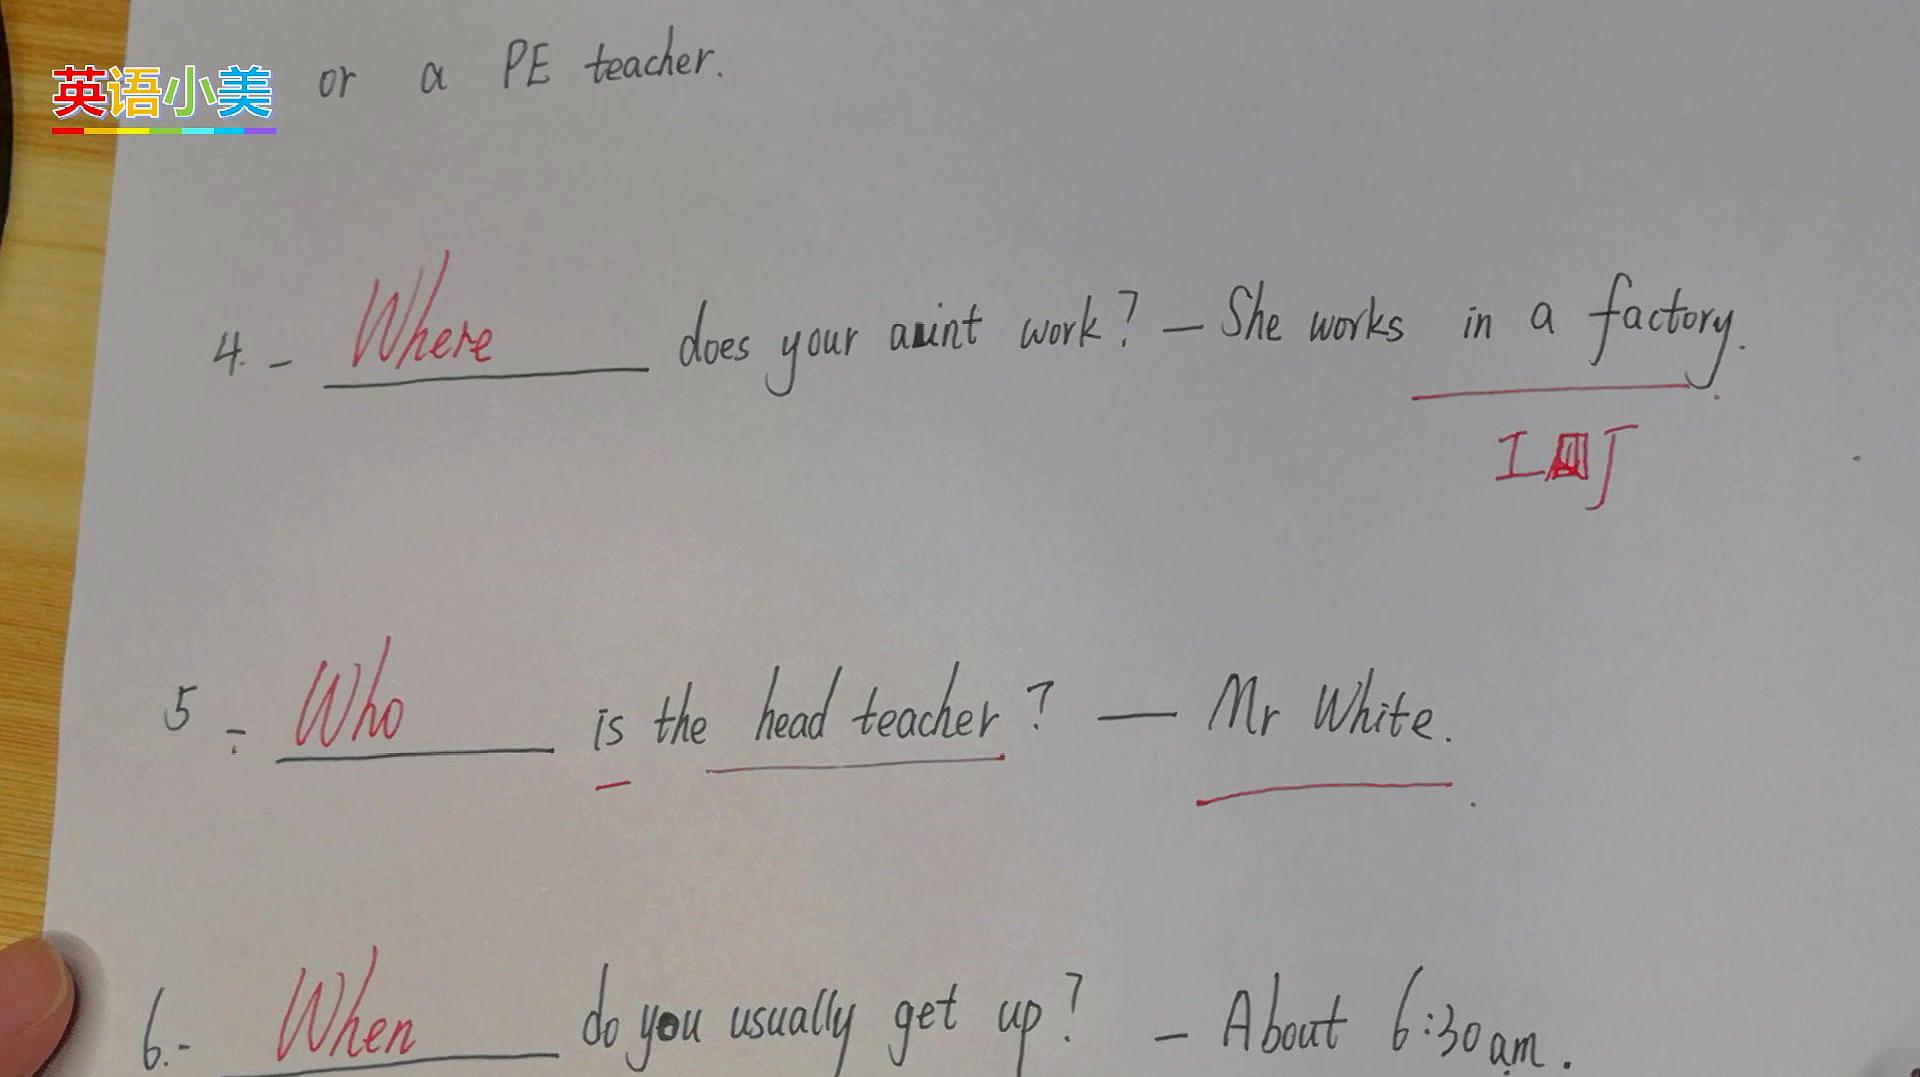 英语小美
or a PE teacher.
4. - Where does your auint work? — She works in a factory.
5 - Who is the head teacher? — Mr White.
6. - When do you usually get up? - About 6:30 am.